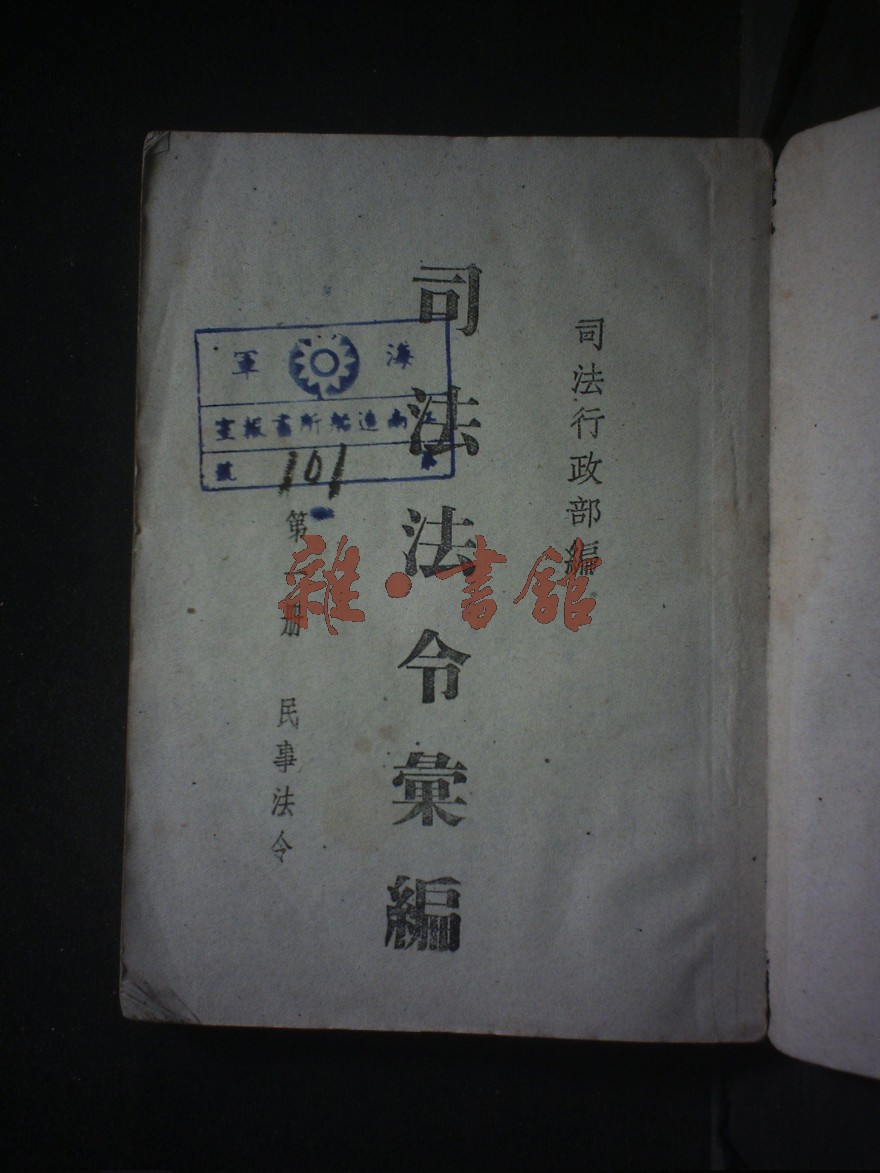 司法行政部編
司法法令彙編
第一册 民事法令
海軍
江南造船所書報室
第101號
雜·書館